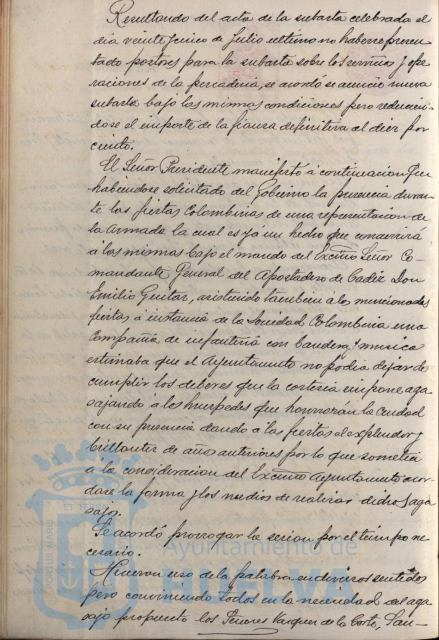 Resultando del acta de la subasta celebrada el
dia veinte y cinco de Julio ultimo no haberse presen-
tado postores para la subasta sobre los servicios y ope-
raciones de la pescaderia, se acordó se anuncie nueva
subasta bajo las mismas condiciones pero reducien-
dose el importe de la fianza definitiva al diez por
ciento.
El Señor Presidente manifestó á continuacion que
habiendose solicitado del Gobierno la presencia duran-
te las fiestas Colombinas de una representacion de
la Armada la cual es yá un hecho que concurrirá
á las mismas bajo el mando del Excmo Señor Co-
mandante General del Apostadero de Cadiz Don
Emilio asistiendo tambien a las mencionadas
fiestas á instancia de la Sociedad Colombina una
Compañia de infanteria con bandera y musica
estimaba que el Ayuntamiento no podia dejar de
cumplir los deberes que la cortesia impone aga-
sajando á los huespedes que honrarán la Ciudad
con su presencia dando á las fiestas el explendor y
brillantez de años anteriores por lo que sometia
á la consideracion del Excmo Ayuntamiento acor-
dase la forma y los medios de realizar dichos aga-
sajos.
Se acordó prorrogar la sesion por el tiempo ne-
cesario.
Hicieron uso de la palabra en diversos sentidos
pero conviniendo todos en la necesidad del aga-
sajo propuesto los Señores Vazquez de la Corte, San-
Ayuntamiento de
HUELVA